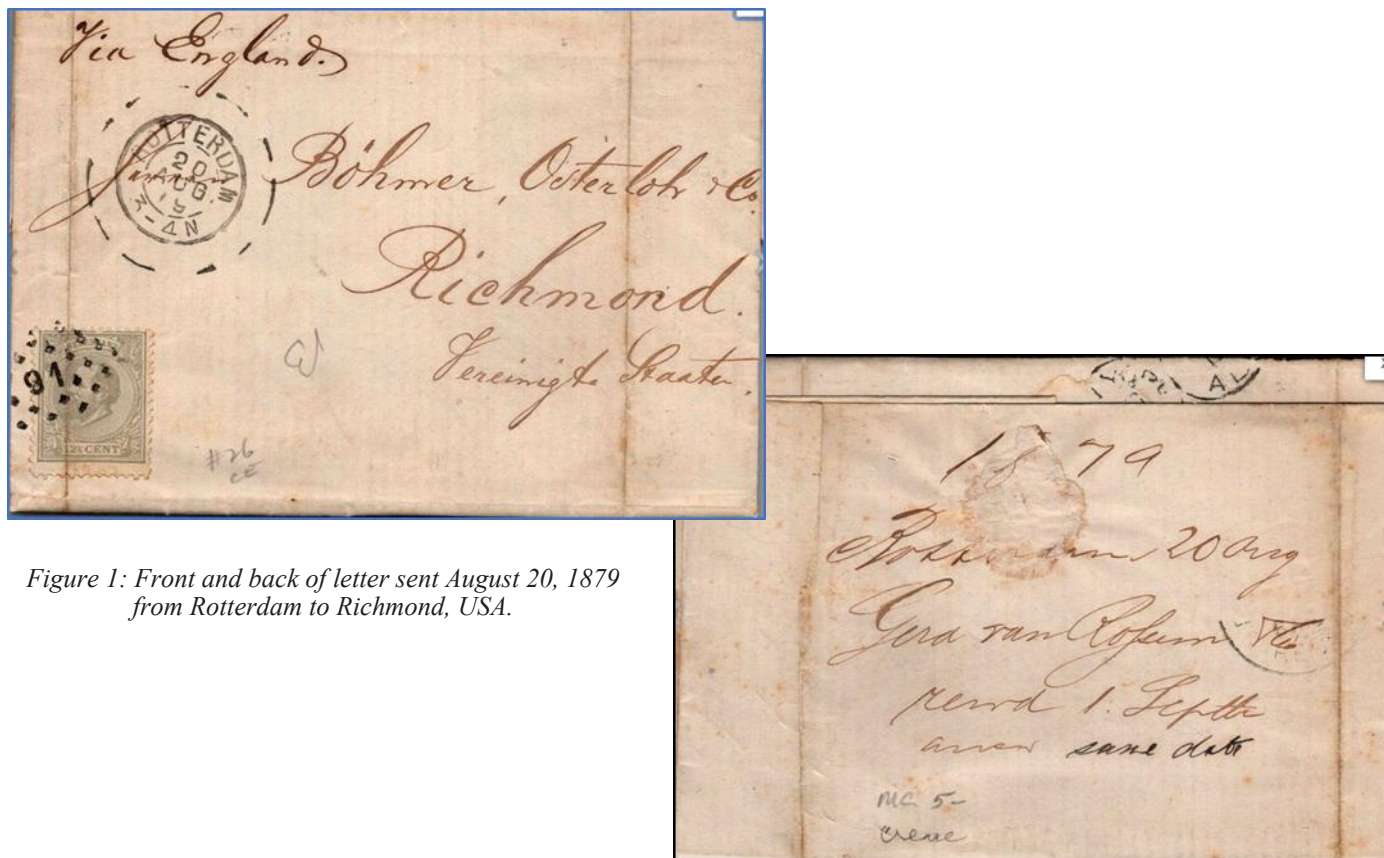 Via England.
ROTTERDAM
20
AUG
3-4N
Böhmer, Osterloh & Co.
Richmond.
Vereinigte Staaten.
91
12½ CENT
#26
Figure 1: Front and back of letter sent August 20, 1879
from Rotterdam to Richmond, USA.
1879
Rotterdam 20 Aug
Gerd van Rossum
recvd 1. Septbr
answ same date
MC 5-
crease